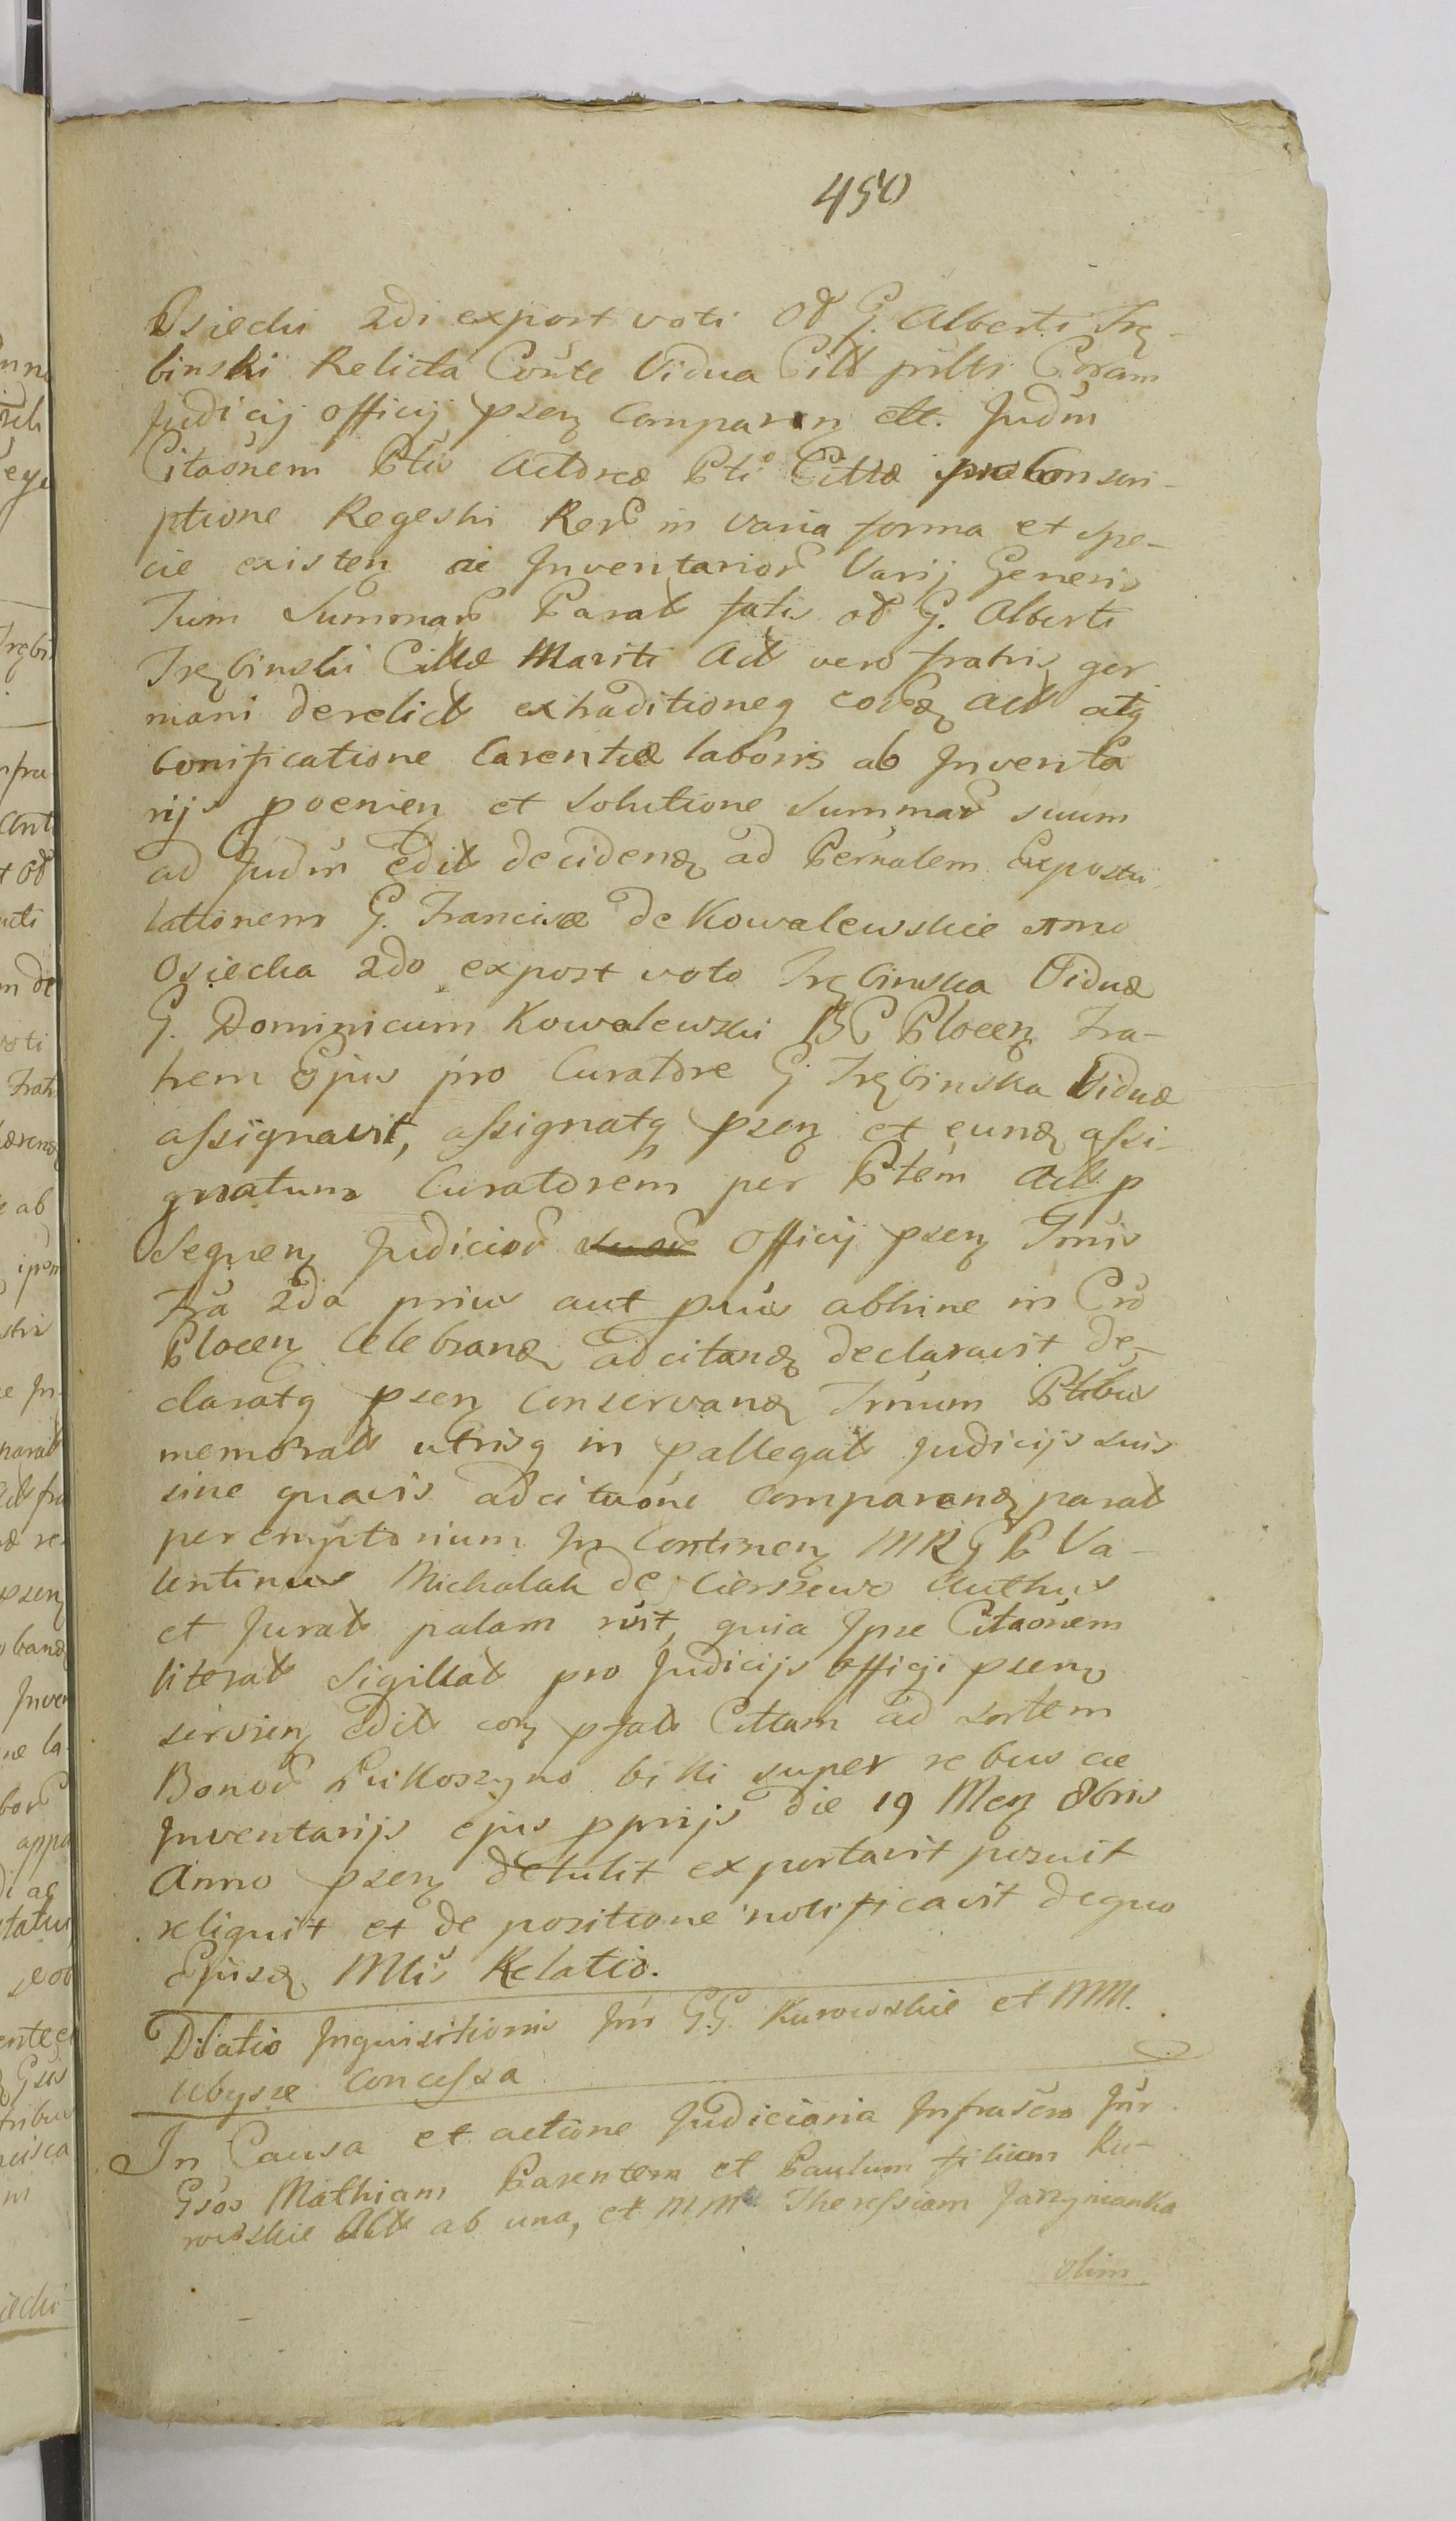 450
Osiecki 2di expost voti Od G. Alberti Trę-
binski Relicta Conte Vidua Citt pnltr Coram
Judicij officij psen comparen ett. Judm
Citaonem Ptis Actorea Pti Cittæ pro Conscri-
ptione Regestri Rer in varia forma et spe-
cie existen ac Inventarior Varij Generis
Tum Summar Parat fatis od G. Alberti
Trębinski Cittæ Mariti Act vero fratris ger
mani derelict extraditioneq eord Act atq
bonificatione Carentiæ laboris ab Inventa
rijs provenien et Solutione Summar suum
ad Judm edit decidend ad Pernalem Expostu
lationem G. Franciscæ de Kowalewskie 1mo
Osiecka 2do expost voto Trębinska Viduæ
G. Dominicum Kowalewski BC Plocen Fra-
trem Ejus pro Curatore G. Trębinska Viduæ
assignavit, assignatq psen et eund assi-
gnatum Curatorem per Ptem Act p
Sequen Judicior officij psen Tmis
Fra 2da prius aut prius abhinc in Cro
Plocen celebrand adcitand declaravit de-
claratq psen conservand Tmum Ptibus
memorat utrisq in pallegat Judicijs suis
sine quavis adcitaone comparend parat
peremptorium In Continen MRGP Va-
lentinus Michalak de Cierszewo Authus
et Jurat palam rist, quia Ipse Citaonem
literat Sigillat pro Judicijs officij psen
servien edit con pfat Cittam ad sortem
Bonor Łukoszyno biki super rebus ac
Inventarijs ejus pprijs die 19 Men 8bris
Anno psen detulit exportavit posuit
reliquit et de positione notificavit dequo
Ejusd Mlis Relatio.
Dilatio Inquisitionis Inr GG. Kurowskie et MM.
Ubysze Concessa
In Causa et actione Judiciaria Infrascro Inr
Gsos Mathiam Parentem et Paulum filium Ku-
rowskie Act ab una, et MM Theressiam Jarzynianka
olim